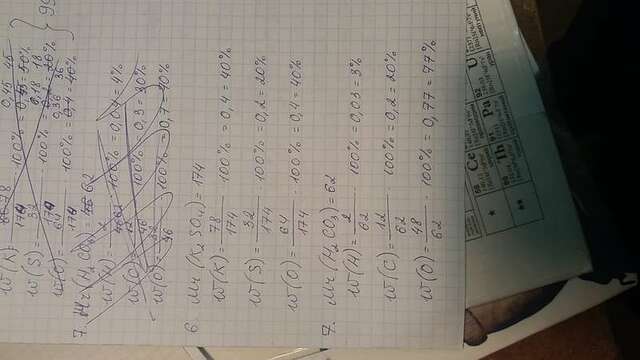 78
w(S) = 32/174 · 100% =
w(O) = 64/174 · 100% = 0,4 = 40%
7. Mr(H₂CO₃) = 62
w(H) = 2/ · 100% = 0,04 = 4%
w(O) = 12/46 · 100% = 0,3 = 30%
w(O) = 32/46 · 100% = 0,7 = 70%
6. Mr(K₂SO₄) = 174
w(K) = 78/174 · 100% = 0,4 = 40%
w(S) = 32/174 · 100% = 0,2 = 20%
w(O) = 64/174 · 100% = 0,4 = 40%
7. Mr(H₂CO₃) = 62
w(H) = 2/62 · 100% = 0,03 = 3%
w(C) = 12/62 · 100% = 0,2 = 20%
w(O) = 48/62 · 100% = 0,77 = 77%
* 58 Ce
92 U
** 90 Th
91 Pa